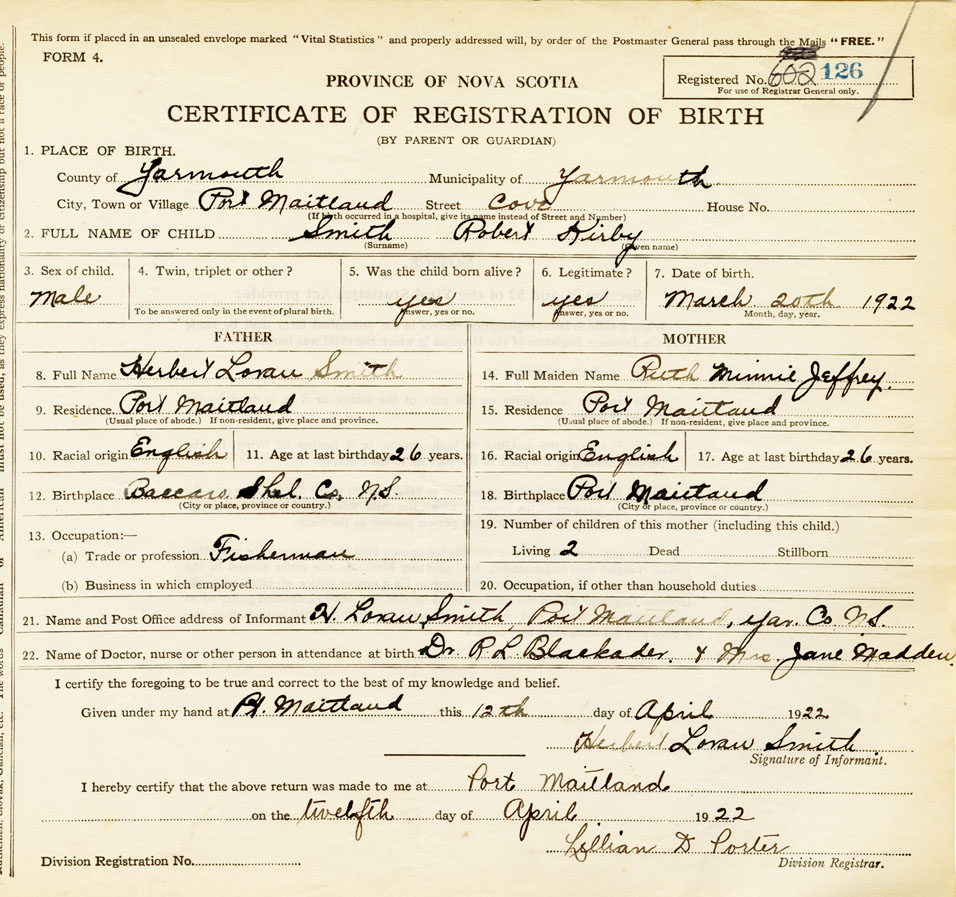 This form if placed in an unsealed envelope marked "Vital Statistics" and properly addressed will, by order of the Postmaster General pass through the Mails "FREE."
FORM 4.
Registered No. 602 126
For use of Registrar General only.
PROVINCE OF NOVA SCOTIA
CERTIFICATE OF REGISTRATION OF BIRTH
(BY PARENT OR GUARDIAN)
1. PLACE OF BIRTH.
County of Yarmouth Municipality of Yarmouth
City, Town or Village Port Maitland Street Cove House No.
(If birth occurred in a hospital, give its name instead of Street and Number)
2. FULL NAME OF CHILD Smith Robert Kirby
(Surname) (Given name)
3. Sex of child. 4. Twin, triplet or other? 5. Was the child born alive? 6. Legitimate? 7. Date of birth.
Male yes yes March 20th 1922
To be answered only in the event of plural birth. Answer, yes or no. Answer, yes or no. Month, day, year.
FATHER
8. Full Name Herbert Loran Smith
9. Residence. Port Maitland
(Usual place of abode.) If non-resident, give place and province.
10. Racial origin English 11. Age at last birthday 26 years.
12. Birthplace Baccaro Shel. Co. N.S.
(City or place, province or country.)
13. Occupation:—
(a) Trade or profession Fisherman
(b) Business in which employed
MOTHER
14. Full Maiden Name Ruth Minnie Jeffrey.
15. Residence Port Maitland
(Usual place of abode.) If non-resident, give place and province.
16. Racial origin English 17. Age at last birthday 26 years.
18. Birthplace Port Maitland
(City or place, province or country.)
19. Number of children of this mother (including this child.)
Living 2 Dead Stillborn
20. Occupation, if other than household duties
21. Name and Post Office address of Informant H. Loran Smith, Port Maitland, Yar. Co. N.S.
22. Name of Doctor, nurse or other person in attendance at birth Dr. R L Blackader. & Mrs. Jane Madden.
I certify the foregoing to be true and correct to the best of my knowledge and belief.
Given under my hand at Pt. Maitland this 12th day of April 1922
Herbert Loran Smith
Signature of Informant.
I hereby certify that the above return was made to me at Port Maitland
on the twelfth day of April 1922
Lillian D Porter
Division Registrar.
Division Registration No.